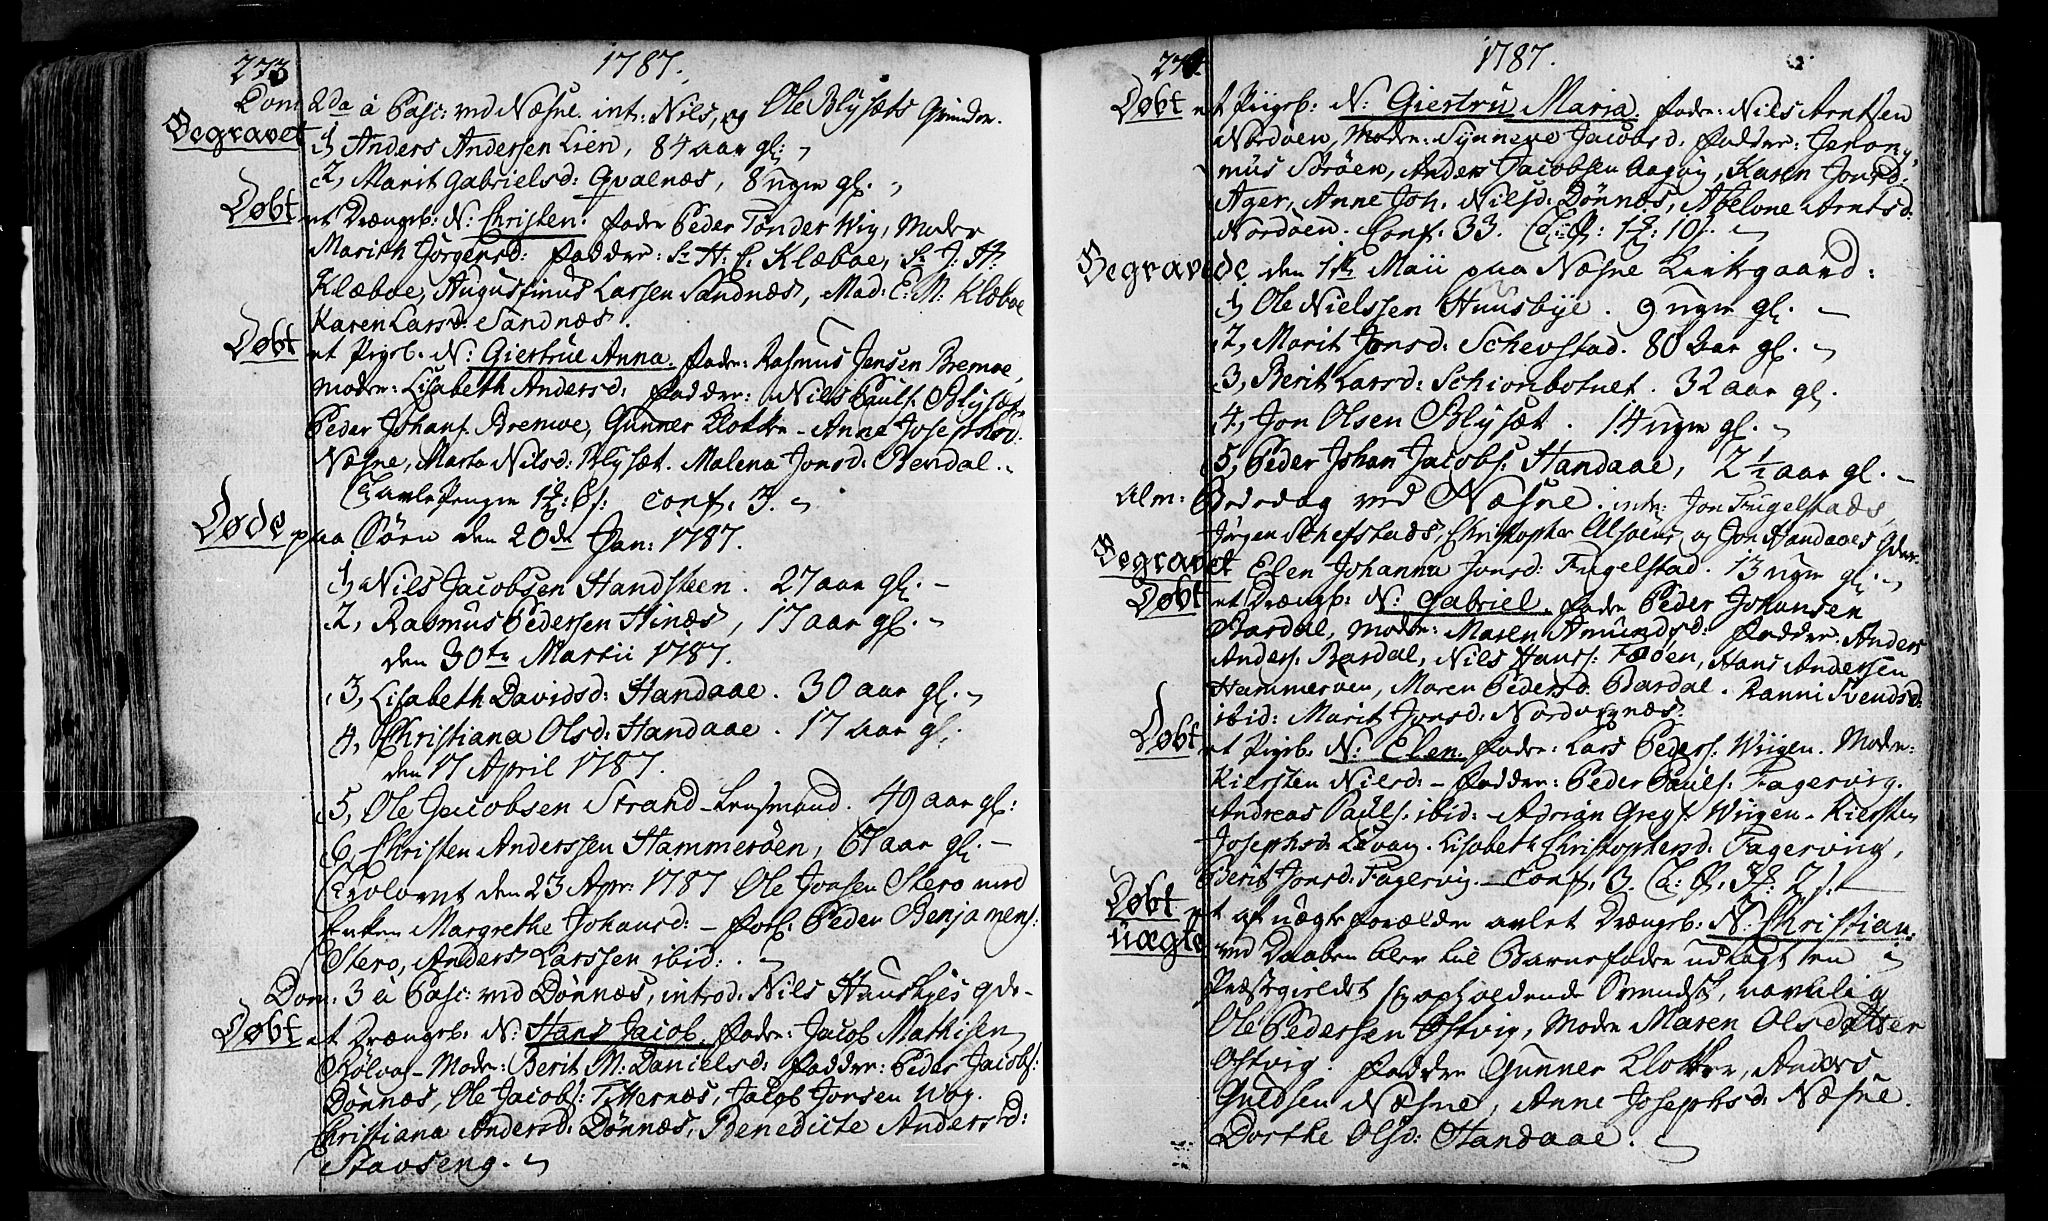 273
1787.
Dom 2da à Pasc: ved Næsne. int: Nils, og Ole Blysæts Qvinder.
Begravet
1, Anders Andersen Lien, 84 aar gl:
2, Marit Gabrielsd: Qvalnæs, 8 uger gl.
Døbt et Drængeb: N: Christen. fader Peder Tønder Wiig, Moder
Marith Jørgensd: Fadder: Sr H: C: Klæboe, Sr J: H:
Klæboe, Augustinus Larsen Sandnæs, Mad: E: M: Klæboe
Karen Larsd: Sandnæs.
Døbt et Pigeb. N: Giertrue Anna. fader: Rasmus Jensen Bremve,
moder: Lisabeth Andersd: Fadder: Nils Pauls. Blysæt,
Peder Johans. Bremve, Gunner Klokker - Anne Josephsd:
Næsne, Marta Nilsd: Blysæt. Malena Jonsd: Bendal.
Conf. 3.
Døde paa Søen den 20de Jan: 1787.
1, Niels Jacobsen Handsteen. 27 aar gl: -
2, Rasmus Pedersen Hinæs, 17 aar gl.
den 30te Martii 1787.
3, Lisabeth Davidsd: Handaae. 30 aar gl.
4, Christiana Olsd: Handaae. 17 aar gl.
den 17 April 1787.
5, Ole Jacobsen Strand - Lensmand. 49 aar gl:
6, Christen Anderssen Hammerøen, 67 aar gl: -
Trolovet den 23 Apr: 1787 Ole Jonsen Stero med
Enken Margrethe Johansd: - Forl: Peder Benjamens:
Stero, Anders Larssen ibid:
Dom: 3 à Pasc: ved Dønnæs, introd: Nils Huusbyes qde.
Døbt et Drængeb. N: Hans Jacob. Fader: Jacob Mathisen
Moder: Berit M: Danielsd: Fadder: Peder Jacobs:
Dønnæs, Ole Jacobs: Titternæs, Jacob Jonsen Wog.
Christiana Andersd: Dønnæs, Benedicte Andersd:
Stavseng.
274.
1787.
Døbt et Piigeb: N: Giertru Maria. fader: Nils Arntsen
Nordøen, Moder: Synneve Jacobsd. Fadder: Jerony,
mus Sørøen, Anders Jacobsen Aagøy, Karen Jonsd:
Ager, Anne Joh. Nilsd: Dønnæs, Abelone Arntsd.
Nordøen. Conf. 33.
Begravede den 1te Maii paa Næsne Kirkegaard:
1, Ole Nielssen Huusbye. 9 uger gl.
2, Marit Jonsd: Schevstad. 80 Aar gl.
3, Berit Larsd: Schionbotnet. 32 aar gl.
4, Jon Olsen Blysæt. 14 uger gl.
5, Peder Johan Jacobs: Handaae, 2 1/2 aar gl. -
Alm: Bededag ved Næsne. intr: Jon Fugelstads,
Jørgen Schefstads, Christopher Alsøens, og Jon Handaaes Qder
Begravet Elen Johanna Jonsd: Fugelstad. 13 uger gl:
Døbt et Drængb: N: Gabriel. fader Peder Johansen
Bardal, Moder: Maren Amundsd: Fadder: Anders
Anders. Bardal, Nils Hans: Fæøen, Hans Andersen
Hammerøen, Maren Pedersd. Bardal. Ranni Svendsd:
ibid: Marit Jonsd: Nordvignæs.
Døbt et Pigeb. N: Elen. Fader: Lars Peders. Wiigen. Moder:
Kiersten Nilsd: - Fadder: Peder Pauls: Fagervig.
Andreas Pauls. ibid: - Adrian Gregs. Wiigen - Kiersten
Josephsd: Levang. Lisabeth Christophersd: Fagerviig,
Berit Jonsd: Fagervig. - Conf. 3.
Døbt et af uægte forældre avlet Drængeb: N: Christian.
uægte ved Daaben blev til Barnefader udlagt en
Præstegieldet sig opholdende Svendsk, navnlig
Ole Pedersen Østvig, Moder Maren Olsdatter
Østvig. Fadder Gunner Klokker, Anders
Næsne, Anne Josephsd: Næsne.
Dorthe Olsd: Handaae.